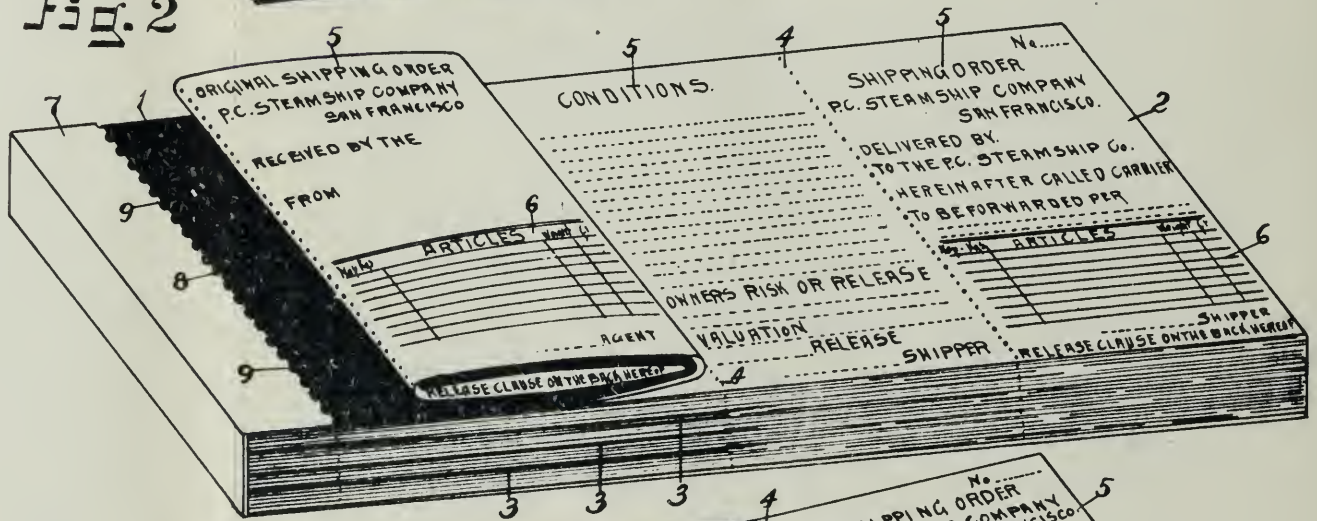 Fig. 2
5
ORIGINAL SHIPPING ORDER
P.C. STEAMSHIP COMPANY
SAN FRANCISCO
RECEIVED BY THE
FROM
6
ARTICLES Weight
AGENT
RELEASE CLAUSE ON THE BACK HEREOF
5
CONDITIONS.
OWNERS RISK OR RELEASE
VALUATION
RELEASE
SHIPPER
4
5
No.....
SHIPPING ORDER
P.C. STEAMSHIP COMPANY
SAN FRANCISCO.
DELIVERED BY.
TO THE P.C. STEAMSHIP Co.
HEREINAFTER CALLED CARRIER
TO BE FORWARDED PER
ARTICLES Weight
SHIPPER
RELEASE CLAUSE ON THE BACK HEREOF
2
6
7
1
9
8
9
4
3 3 3
4
No.....
SHIPPING ORDER
COMPANY
5